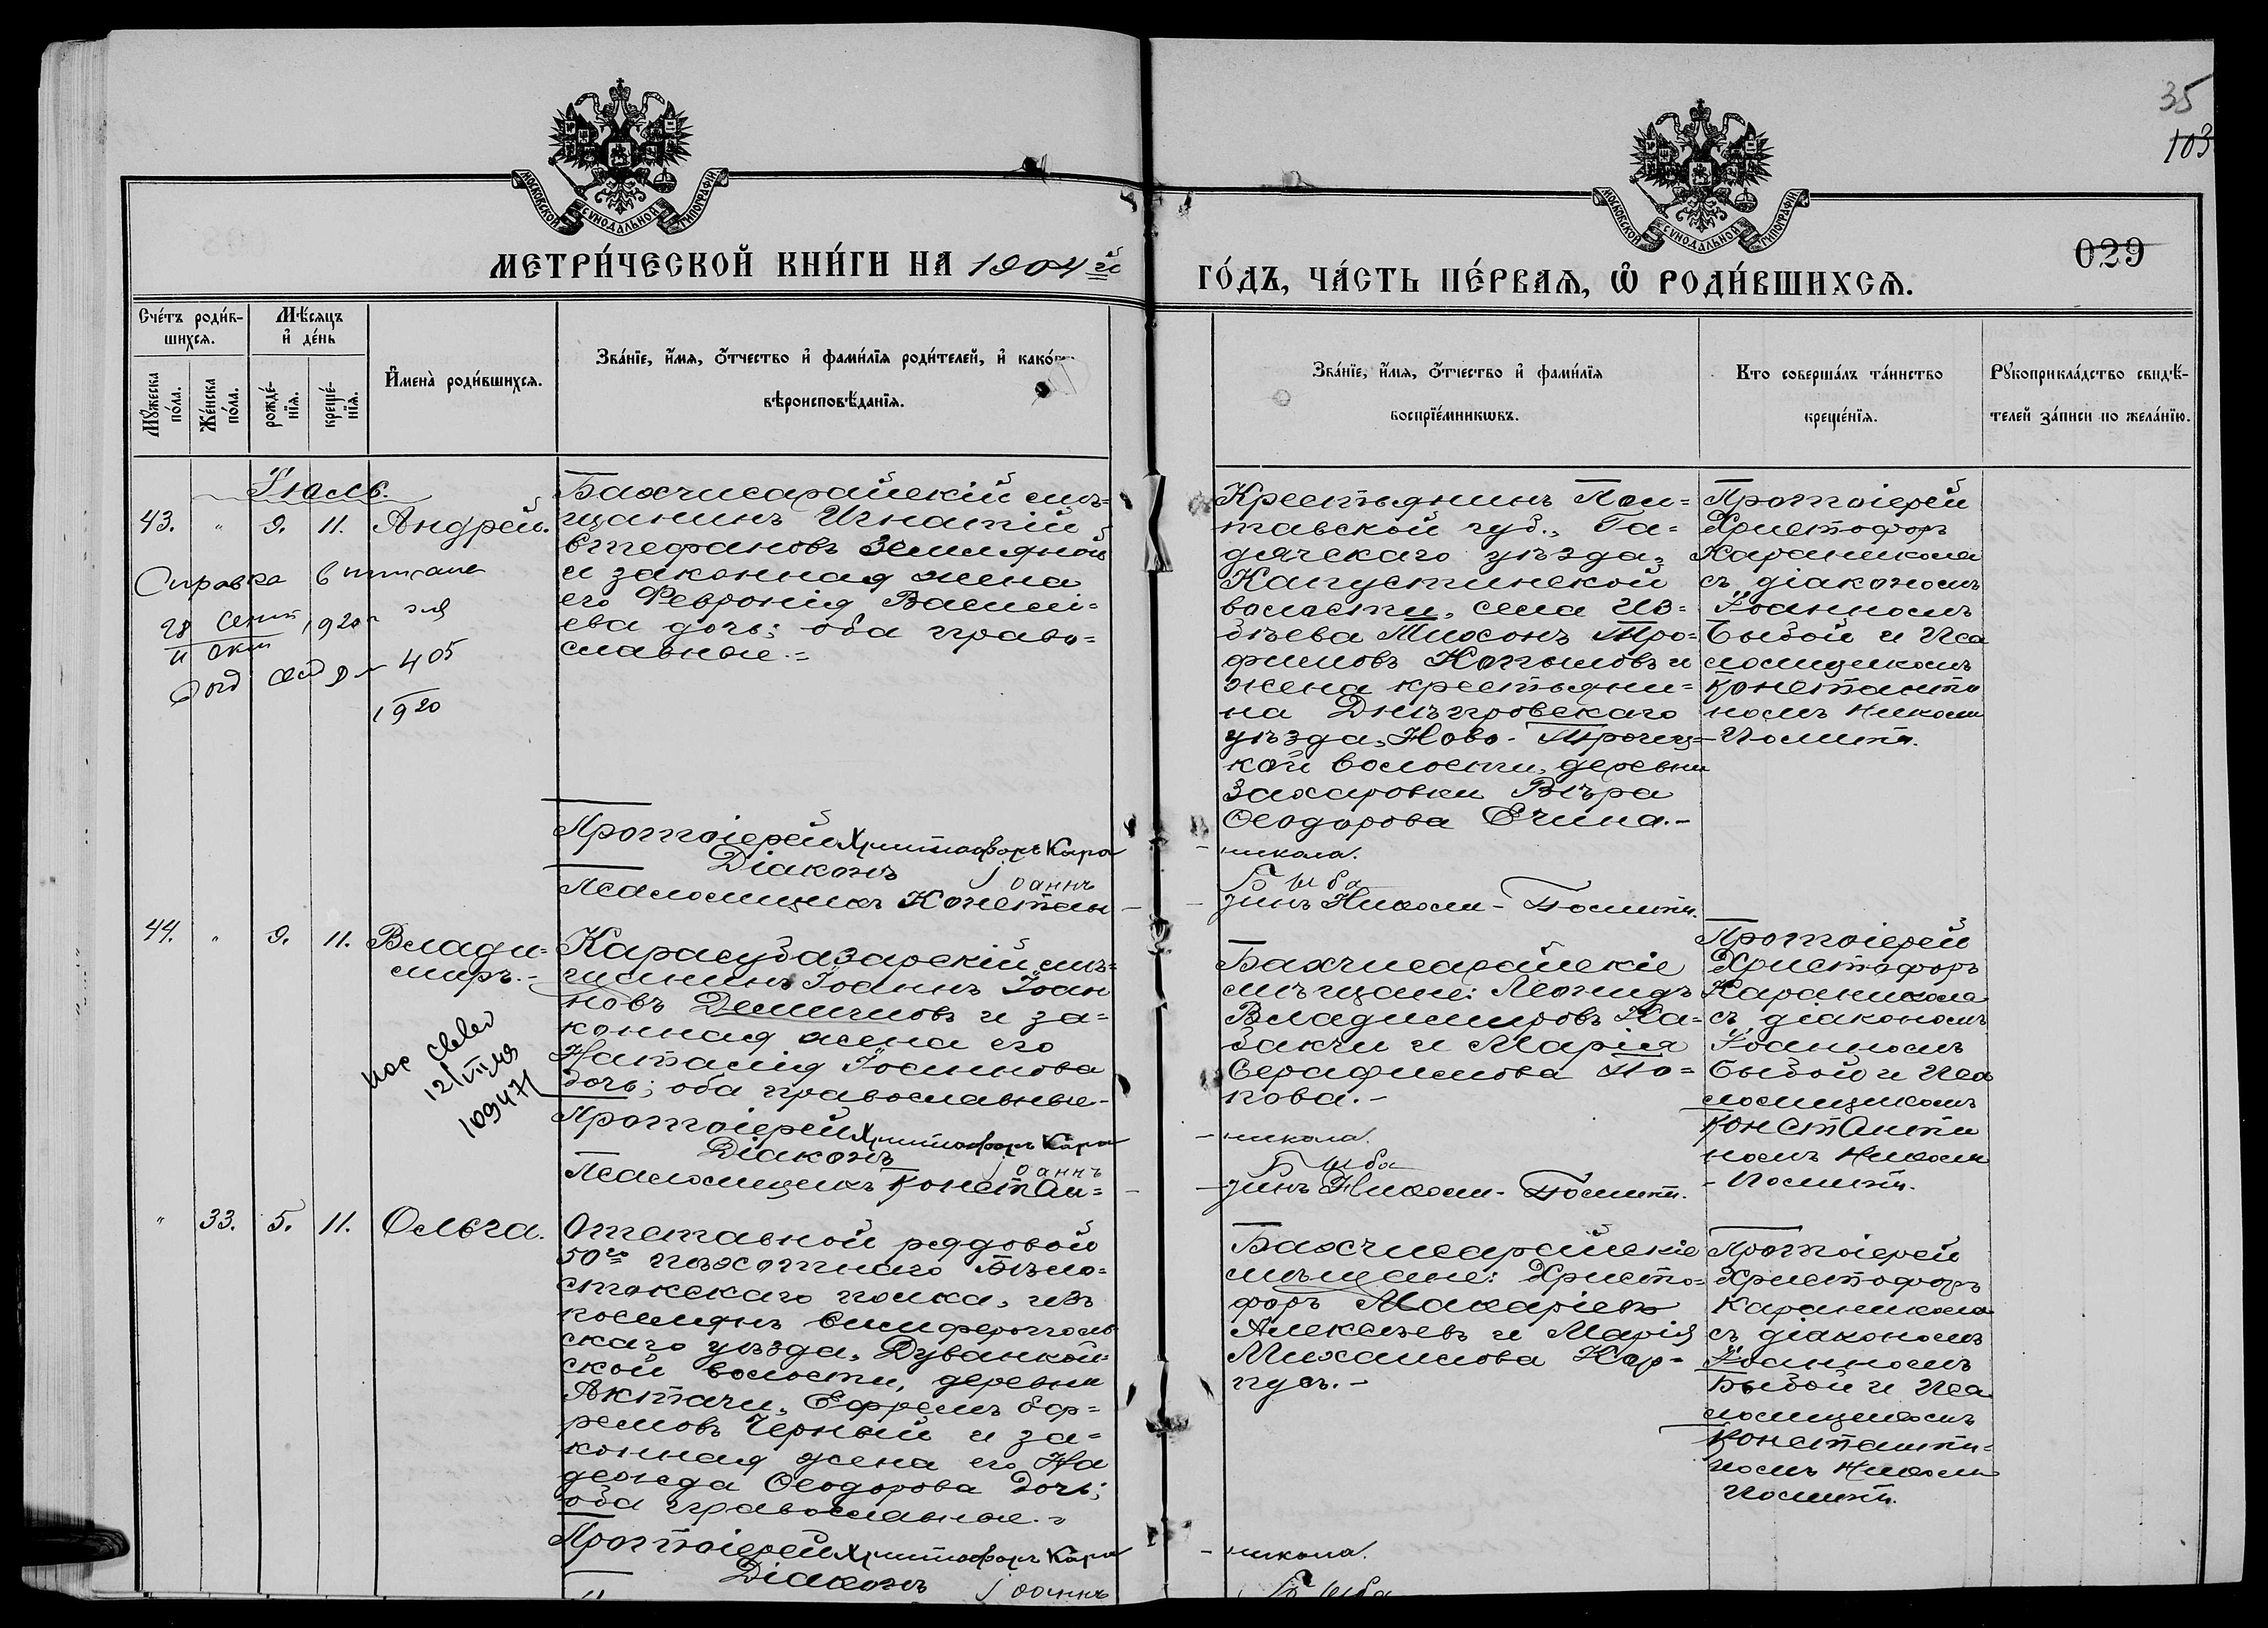 35
103
029
МОСКОВСКОЙ СУНОДАЛЬНОЙ ТИПОГРАФІИ
МОСКОВСКОЙ СУНОДАЛЬНОЙ ТИПОГРАФІИ
МЕТРИ́ЧЕСКОЙ КНИ́ГИ НА 1904й
ГО́ДЪ, ЧА́СТЬ ПЕ́РВАѦ, Ѡ РОДИ́ВШИХСѦ.
Сче́тъ роди́в-
шихсѧ.
Мѣ́сѧцъ
и де́нь
Мꙋ́жеска
по́ла.
Же́нска
по́ла.
рожде́-
нїѧ.
креще́-
нїѧ.
Имена̀ роди́вшихсѧ.
Зва́нїе, и́мѧ, о́тчество и фами́лїѧ роди́телей, и како́гѡ
вѣроисповѣ́данїѧ.
Зва́нїе, и́мѧ, о́тчество и фами́лїѧ
воспрїе́мникѡвъ.
Кто соверша́лъ та́инство
креще́нїѧ.
Рꙋкоприкла́дство свидѣ́-
телей за́писи по жела́нїю.
Іюль.
43. " 9. 11. Андрей.
Справка
28 сент 1920
11 окт
405
1920
Бахчисарайскій мѣ=
щанинъ Игнатій
Стефановъ Земляной
и законная жена
его Февронія Васили=
ева дочь; оба право=
славные.=
Протоіерей Христофоръ Кара
Діаконъ Іоаннъ
Псаломщикъ Констан-
Крестьянинъ Пол=
тавской губ., Га=
дячскаго уѣзда,
Капустинской
волости, села
Тихонъ Тро=
фимовъ Копыловъ и
жена крестьяни=
на Днѣпровскаго
уѣзда, Ново-Троиц=
кой волости, деревни
Захаровки Вѣра
Ѳеодорова Ечина.-
-никола.
Быба
-тинъ Николи-Полити.
Протоіерей
Христофоръ
Караникола
съ діакономъ
Іоанномъ
Быбой и Пса
ломщикомъ
Константи
номъ Николи
-Полити.
44. " 9. 11. Влади=
миръ.-
12/VII
109471
Карасубазарскій мѣ=
щанинъ Іоаннъ Іоан
новъ Демичновъ и за=
конная жена его
Наталія Іоаннова
дочь; оба православные-
Протоіерей Христофоръ Кара
Діаконъ Іоаннъ
Псаломщикъ Констан=
Бахчисарайскіе
мѣщане: Леонидъ
Владимировъ Ка=
закчи и Марія
Серафимова По=
пова.-
-никола.
Быба
-тинъ Николи-Полити.
Протоіерей
Христофоръ
Караникола
съ діакономъ
Іоанномъ
Быбой и Пса
ломщикомъ
Константи
номъ Николи
-Полити.
" 33. 5. 11. Ольга.
Отставной рядовой
50го пѣхотнаго Бѣло=
стокскаго полка, изъ
поселянъ Симферополь
скаго уѣзда, Дуванкой=
ской волости, деревни
Актачи, Ефремъ Еф=
ремовъ Черный и за=
конная жена его На
дежда Ѳеодорова дочь;
оба православные.=
Протоіерей Христофоръ Кара
Діаконъ Іоаннъ
Бахчисарайскіе
мѣщане: Христо=
форъ Макаріевъ
Алексѣевъ и Марія
Михаилова Кар=
пусъ.-
-никола.
Быба
Протоіерей
Христофоръ
Караникола
съ діакономъ
Іоанномъ
Быбой и Пса
ломщикомъ
Константи=
номъ Николи
Полити.